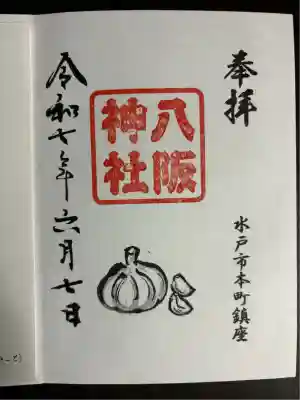 奉拝
水戸市本町鎮座
八阪
神社
令和七年六月七日